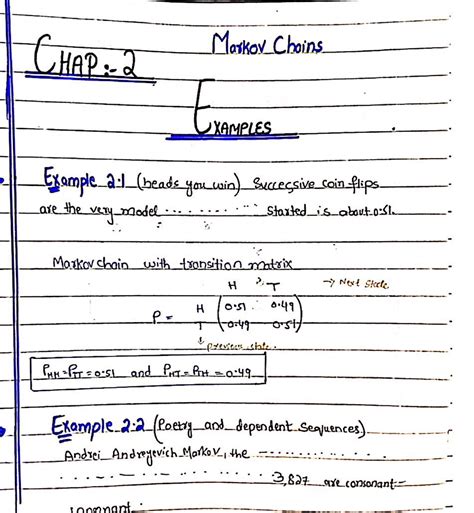 Markov Chains
CHAP:- 2
EXAMPLES
Example 2.1 (heads you win) Successive coin flips
are the very model ........ Started is about 0.51.
Markov chain with transition matrix
H T → Next State
P = H (0.51 0.49
T 0.49 0.51)
↓ previous state
P_HH = P_TT = 0.51 and P_HT = P_TH = 0.49
Example 2.2 (Poetry and dependent sequences)
Andrei Andreyevich Markov, the ..............
.............. 3,827 are consonant-